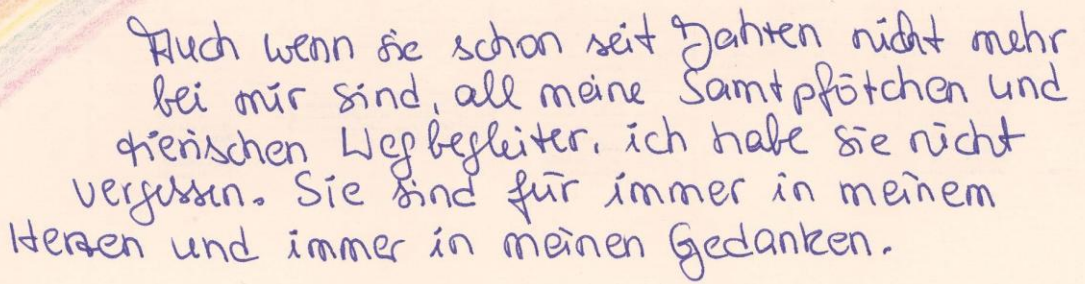 Auch wenn sie schon seit Jahren nicht mehr
bei mir sind, all meine Samtpfötchen und
tierischen Wegbegleiter, ich habe sie nicht
vergessen. Sie sind für immer in meinem
Herzen und immer in meinen Gedanken.